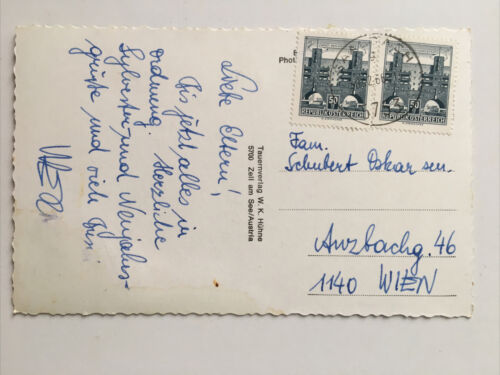 Liebe Eltern!
Bis jetzt alles in
Ordnung. Herzliche
Sylvester- und Neujahrs-
grüße und viel
Tauernverlag W. K. Hühne
5700 Zell am See/Austria
Phot
50
REPUBLIK ÖSTERREICH
50
REPUBLIK ÖSTERREICH
Fam.
Schubert Oskar sen.
Anzbachg. 46
1140 WIEN